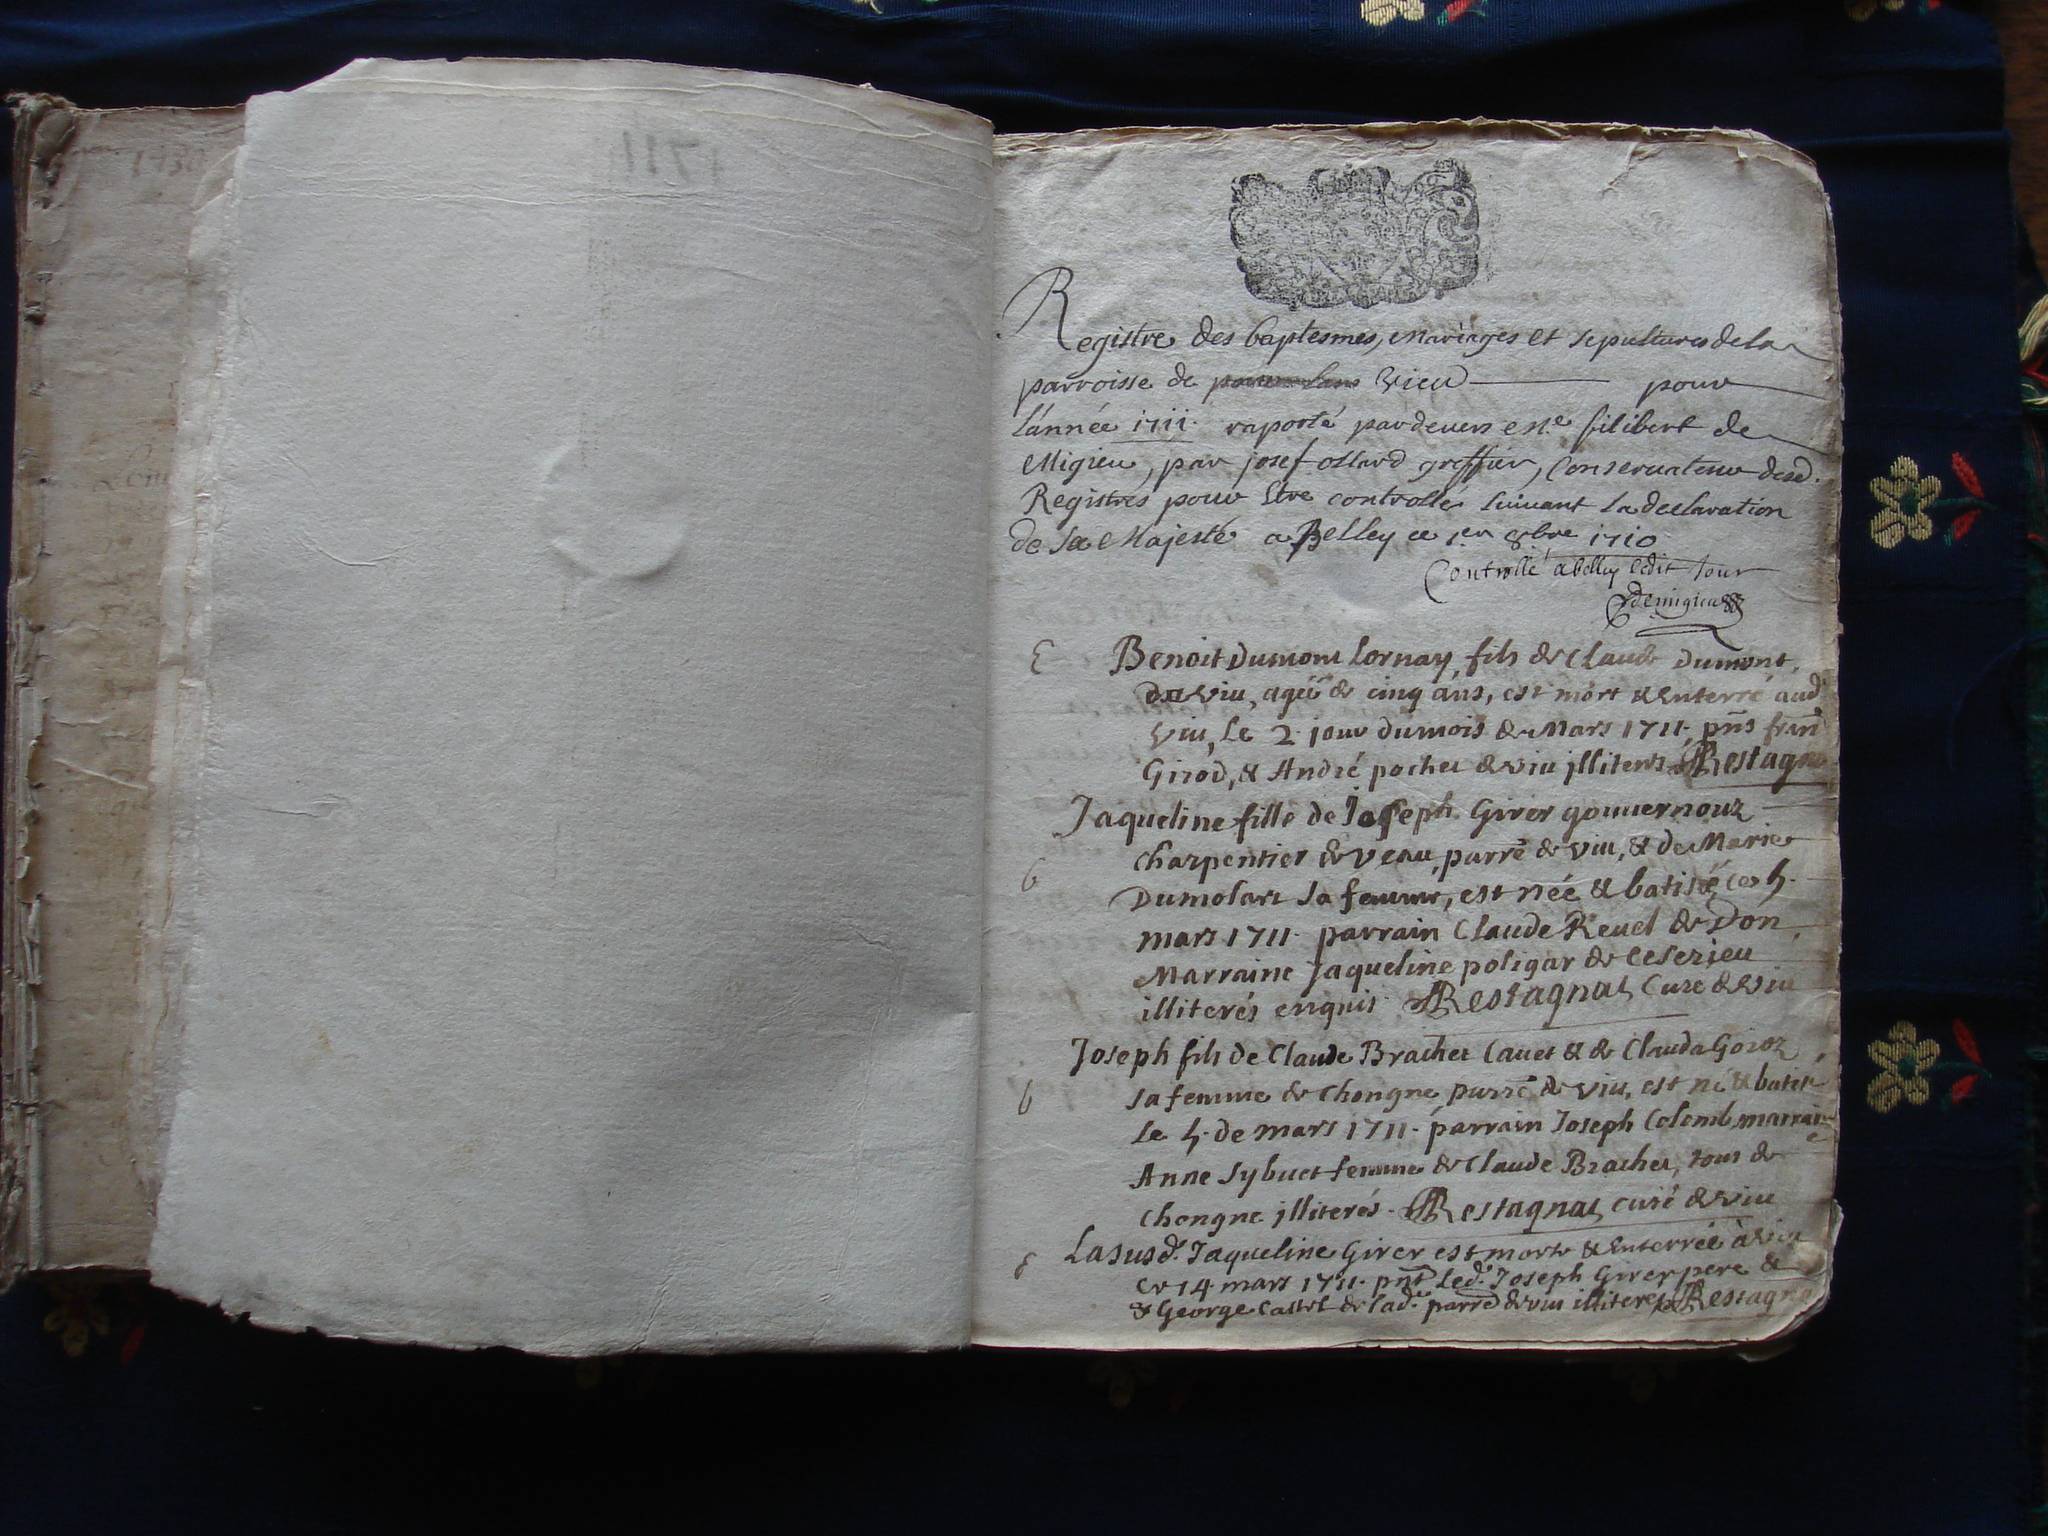 1711
1730
Registre des baptesmes, mariages et sepultures de la
parroisse de vieu pour
l'année 1711. raporté pardevers Me. filibert de
Migieu, par josef ollard greffier, Conservateur desd.
Registres pour Etre controllés suivant la declaration
de Sa Majesté a Belley ce 1er 8bre 1710
Controllé a belley ledit Jour
demigieu
E Benoit Dumont Lornay fils de Claude Dumont,
de viu, agé de cinq ans, est mort & enterré aud
viu, Le 2. jour du mois de Mars 1711. pns fran
Girod, & André pochet de viu jlliterés Restagn
Jaqueline fille de Joseph Girer gouvernouz
b charpentier de veau, parré de viu, & de Marie
Dumolart sa femme, est née & batisé ce 5.
mars 1711. parrain Claude Revel de Don,
Marraine Jaqueline poligar de Ceserieu
illiterés enquis. Restagnat Curé de viu
Joseph fils de Claude Brachet Cavet & de Clauda Goroz
b sa femme de Chongne parré de viu, est né & batisé
Le 5. de mars 1711. parrain Joseph Colomb marraine
Anne Sybuet femme de Claude Brachet, tous de
Chongne jlliterés. Restagnat curé de viu
E La susd. Jaqueline Girer est morte & enterrée à viu
ce 14 mars 1711. pnt Led. Joseph Girer pere &
& George Castel de lad. parré de viu illiterés Restagn